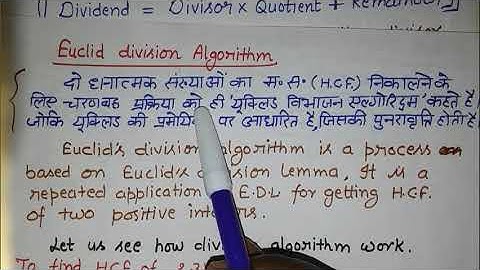 || Dividend = Divisor x Quotient + Remainder
Euclid division Algorithm
दो धनात्मक संख्याओं का म० स० (H.C.F.) निकालने के
लिए चरणबद्ध प्रक्रिया को ही यूक्लिड विभाजन एल्गोरिदम कहते है
जोकि यूक्लिड की प्रमेयिका पर आधारित है, जिसकी पुनरावृत्ति होती है।
Euclid's division algorithm is a process
based on Euclid's division Lemma, It is a
repeated application E.D.L for getting H.C.F.
of two positive
Let us see how algorithm work.
To find HCF of